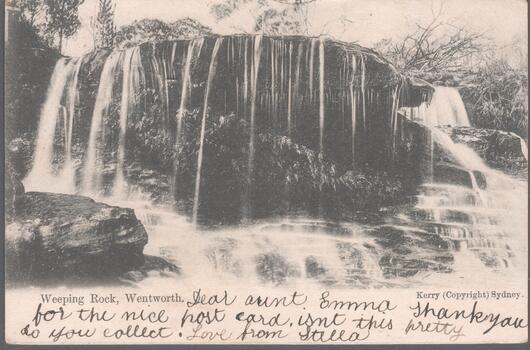 Weeping Rock, Wentworth.
Kerry (Copyright) Sydney.
Dear aunt Emma thank you
for the nice post card. isnt this pretty
do you collect. Love from Stella